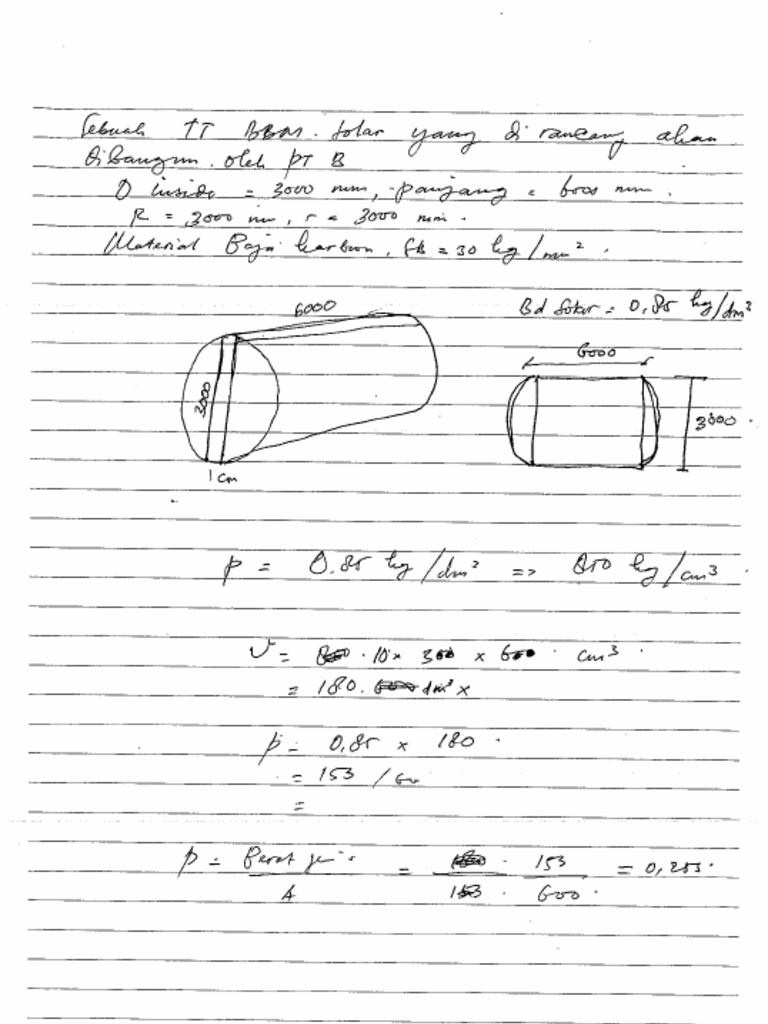 Sebuah TT BBM. Solar yang di rancang akan
dibangun oleh PT B
D inside = 3000 mm, panjang = 6000 mm.
R = 3000 mm, r = 3000 mm.
Material Baja karbon, σB = 30 kg/mm².
6000
Bd Solar = 0,85 kg/dm³
6000
3000
3000
1 cm
p = 0.85 kg/dm³ => 850 kg/cm³
V = 10 x 300 x 600 cm³
= 180. dm³ x
p = 0,85 x 180
= 153 /
=
p = Berat / A = 153 / 600 = 0,255.